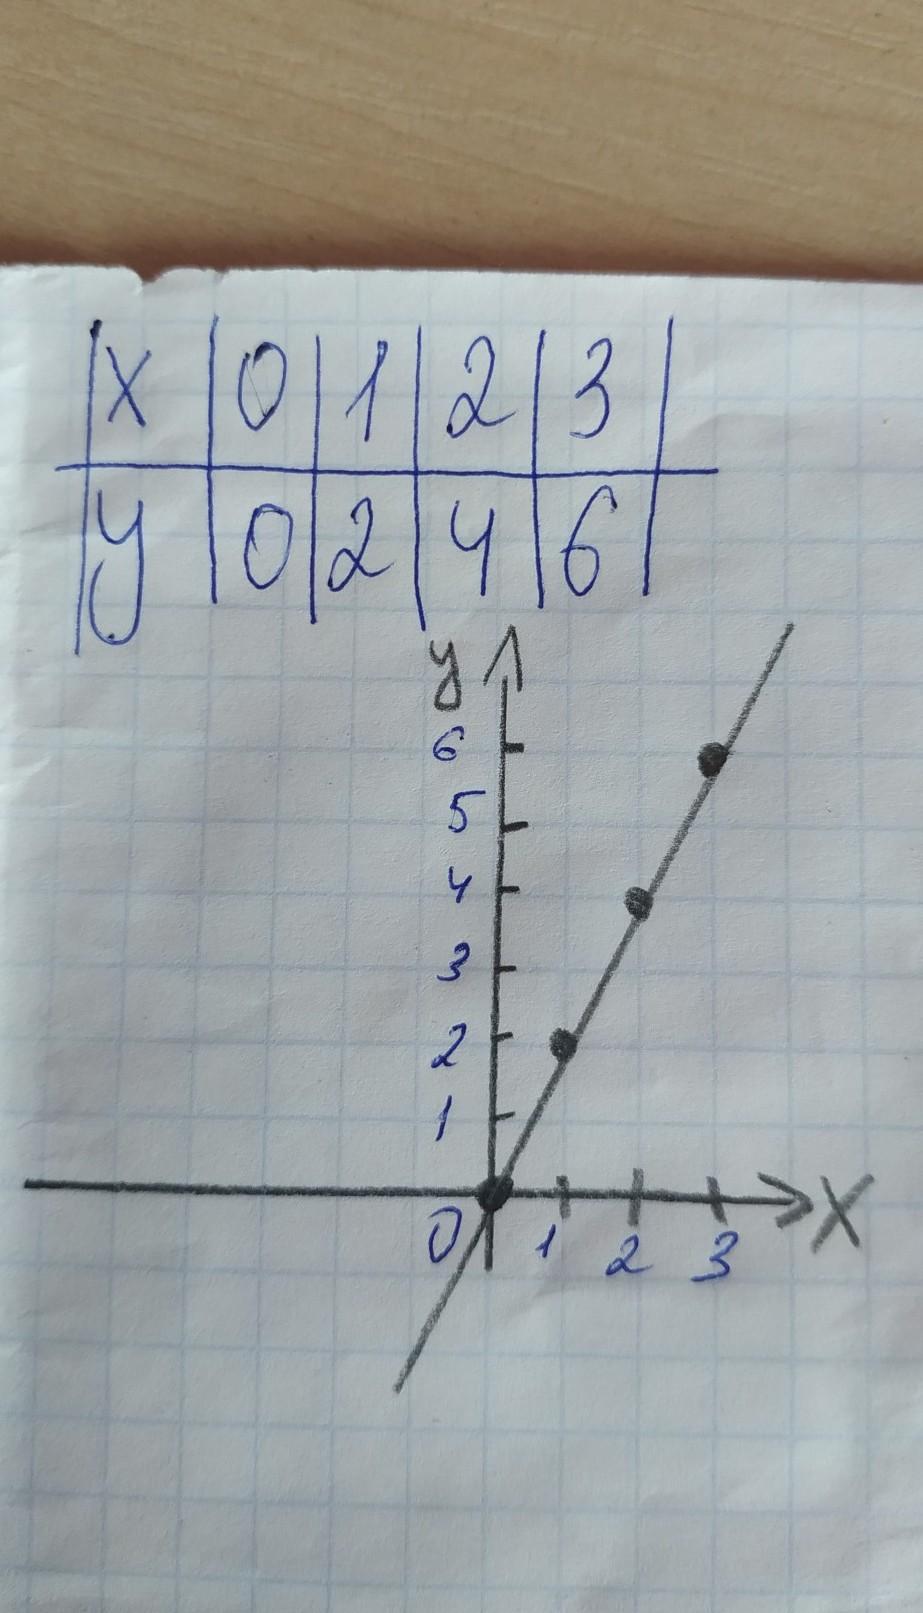 x 0 1 2 3
y 0 2 4 6
y
6
5
4
3
2
1
0 1 2 3 X